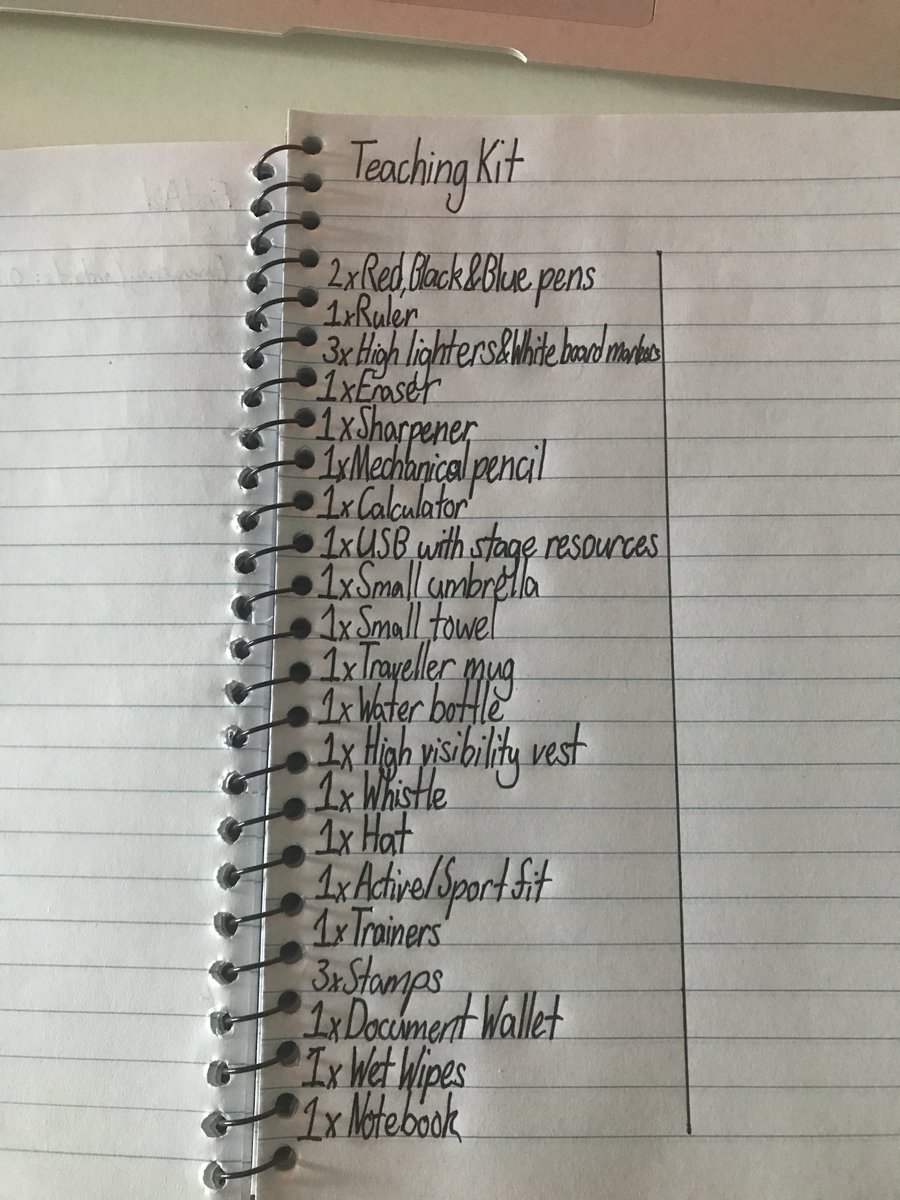 Teaching Kit
2x Red, Black & Blue pens
1x Ruler
3x High lighters & White board markers
1x Eraser
1x Sharpener
1x Mechanical pencil
1x Calculator
1x USB with stage resources
1x Small umbrella
1x Small towel
1x Traveller mug
1x Water bottle
1x High visibility vest
1x Whistle
1x Hat
1x Active/Sport fit
1x Trainers
3x Stamps
1x Document Wallet
1x Wet Wipes
1x Notebook